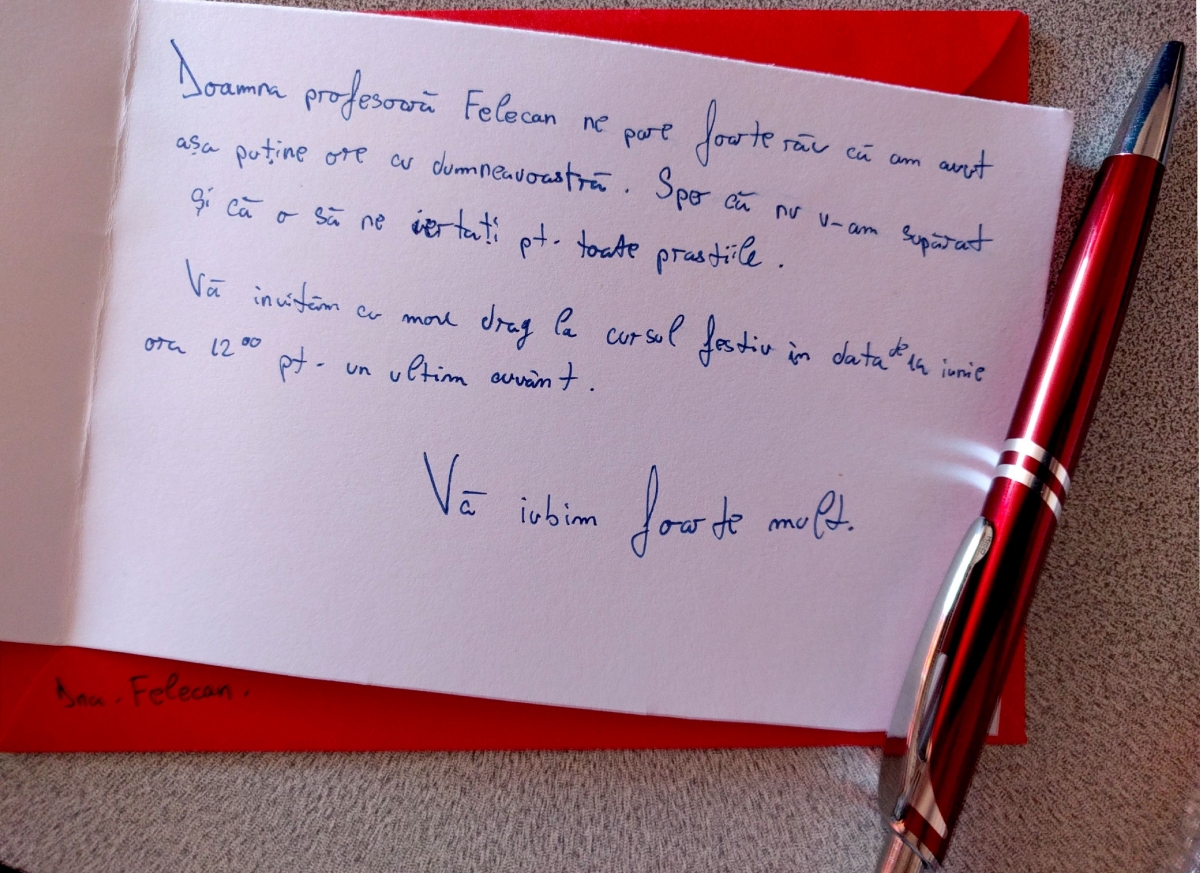 Doamna profesoară Felecan ne pare foarte rău că am avut
așa puține ore cu dumneavoastră. Sper că nu v-am supărat
și că o să ne iertați pt. toate prastiile.
Vă invităm cu mare drag la cursul festiv în data de iunie
ora 12⁰⁰ pt. un ultim cuvânt.
Vă iubim foarte mult.
Dna. Felecan.